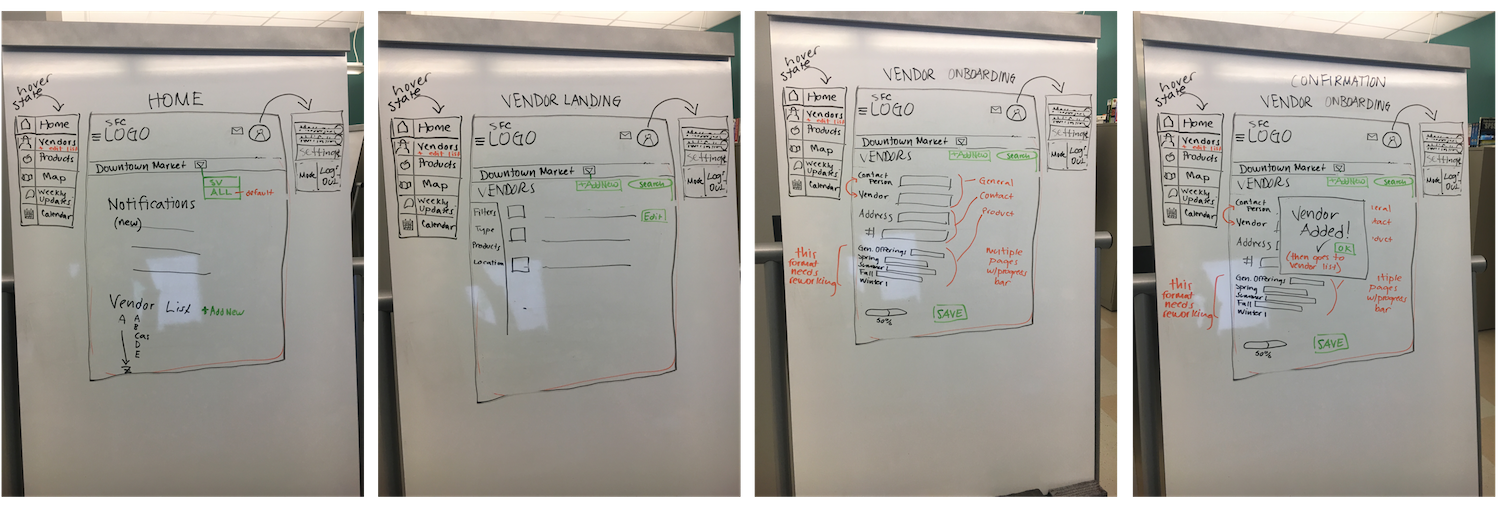 hover
state
HOME
Home
Vendors
+ edit list
Products
Map
Weekly
Updates
Calendar
SFC
LOGO
Settings
Mode
Log
Out
Downtown Market
SV
ALL
default
Notifications
(new)
Vendor List
+Add New
A
Z
A
B
C
D
E
hover
state
VENDOR LANDING
Home
Vendors
+ edit list
Products
Map
Weekly
Updates
Calendar
SFC
LOGO
Settings
Mode
Log
Out
Downtown Market
VENDORS
+Add New
search
Filters
Type
Products
Location
Edit
hover
state
VENDOR ONBOARDING
Home
Vendors
+ edit list
Products
Map
Weekly
Updates
Calendar
SFC
LOGO
Settings
Mode
Log
Out
Downtown Market
VENDORS
+Add New
search
Contact
Person
Vendor
Address
#
General
Contact
Product
Gen. Offerings
Spring
Summer
Fall
Winter
this
format
needs
reworking
multiple
pages
w/progress
bar
50%
SAVE
hover
state
CONFIRMATION
VENDOR ONBOARDING
Home
Vendors
+ edit list
Products
Map
Weekly
Updates
Calendar
SFC
LOGO
Settings
Mode
Log
Out
Downtown Market
VENDORS
+Add New
search
Contact
Person
Vendor
Address
#
Vendor
Added!
OK
(then goes to
vendor list)
eral
tact
duct
Gen. Offerings
Spring
Summer
Fall
Winter
this
format
needs
reworking
ltiple
pages
w/progress
bar
50%
SAVE